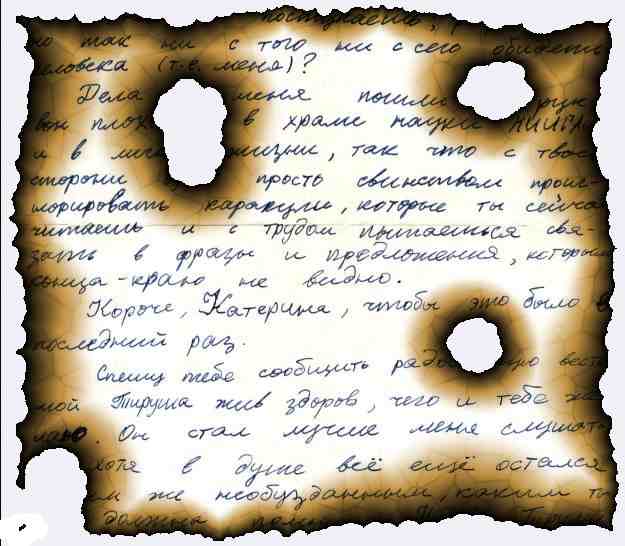 поступаешь,
но так ни с того ни с сего обидеть
человека (т.е. меня)?
Дела меня пошли
вон плохо в храме науки
и в жизни, так что с твоей
стороны просто свинством проиг-
норировать каракули, которые ты сейчас
читаешь и с трудом пытаешься свя-
зать в фразы и предложения, которым
конца-краю не видно.
Короче, Катерина, чтобы это было в
последний раз.
Спешу тебе сообщить весть
мой Тируша жив здоров, чего и тебе же-
лаю. Он стал лучше меня слушать
хотя в душе всё ещё остался
же необузданным, каким ты
должна